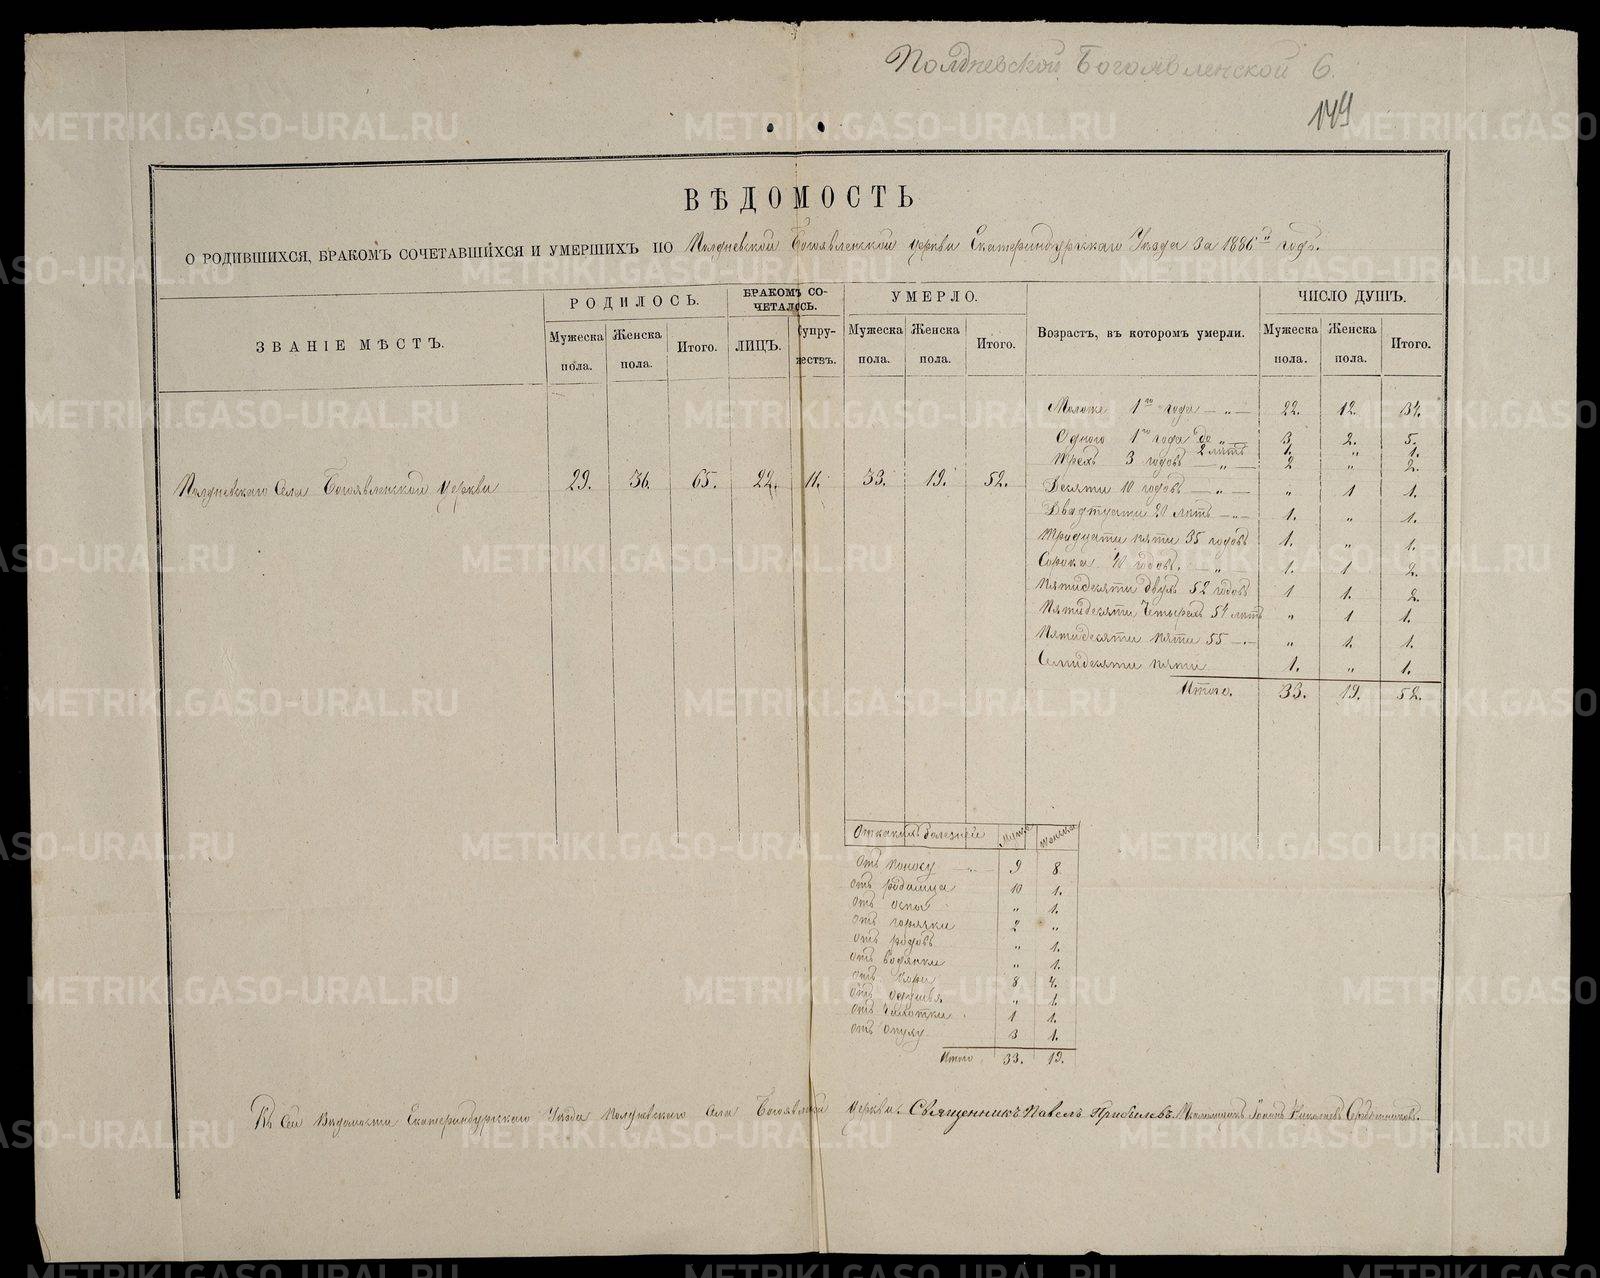 Полдневской Богоявленской 6.
149
ВѢДОМОСТЬ
О РОДИВШИХСЯ, БРАКОМЪ СОЧЕТАВШИХСЯ И УМЕРШИХЪ ПО Полдневской Богоявленской церкви Екатеринбургскаго Уѣзда за 1886й годъ.
ЗВАНІЕ МѢСТЪ.
РОДИЛОСЬ.
Мужеска пола.
Женска пола.
Итого.
БРАКОМЪ СО-
ЧЕТАЛОСЬ.
ЛИЦЪ.
Супру-
жествъ.
УМЕРЛО.
Мужеска пола.
Женска пола.
Итого.
Возрастъ, въ которомъ умерли.
ЧИСЛО ДУШЪ.
Мужеска пола.
Женска пола.
Итого.
Полдневскаго Села Богоявленской церкви 29. 36. 65. 22. 11. 33. 19. 52.
Моложе 1го года — „ — 22. 12. 34.
Одного 1го года до „ — 3 2. 5.
2 лѣтъ 1. „ 1.
Трехъ 3 годовъ — „ — 2 „ 2.
Десяти 10 годовъ — „ — „ 1 1.
Двадцати 20 лѣтъ — „ — 1. „ 1.
Тридцати пяти 35 годовъ 1. „ 1.
Сорока 40 годовъ. „ 1. 1 2.
Пятидесяти двухъ 52 годовъ 1 1. 2.
Пятидесяти Четырехъ 54 лѣтъ „ 1 1.
Пятидесяти пяти 55 — „ 1. 1.
Семидесяти пяти 1. „ 1.
Итого. 33. 19. 52.
От какихъ болезней Мужск Женска
отъ поносу — „ — 9 8.
отъ родимца 10 1.
отъ оспы „ 1.
отъ горячки 2 „
отъ родовъ „ 1.
отъ водянки „ 1.
отъ кори 8 4.
отъ „ 1.
отъ чахотки 1 1.
отъ опуху 3 1.
Итого 33. 19.
Къ сей Ведомости Екатеринбургскаго Уѣзда Полдневскаго Села Богоявленской церкви. Священникъ Павелъ Псаломщикъ
METRIKI.GASO-URAL.RU